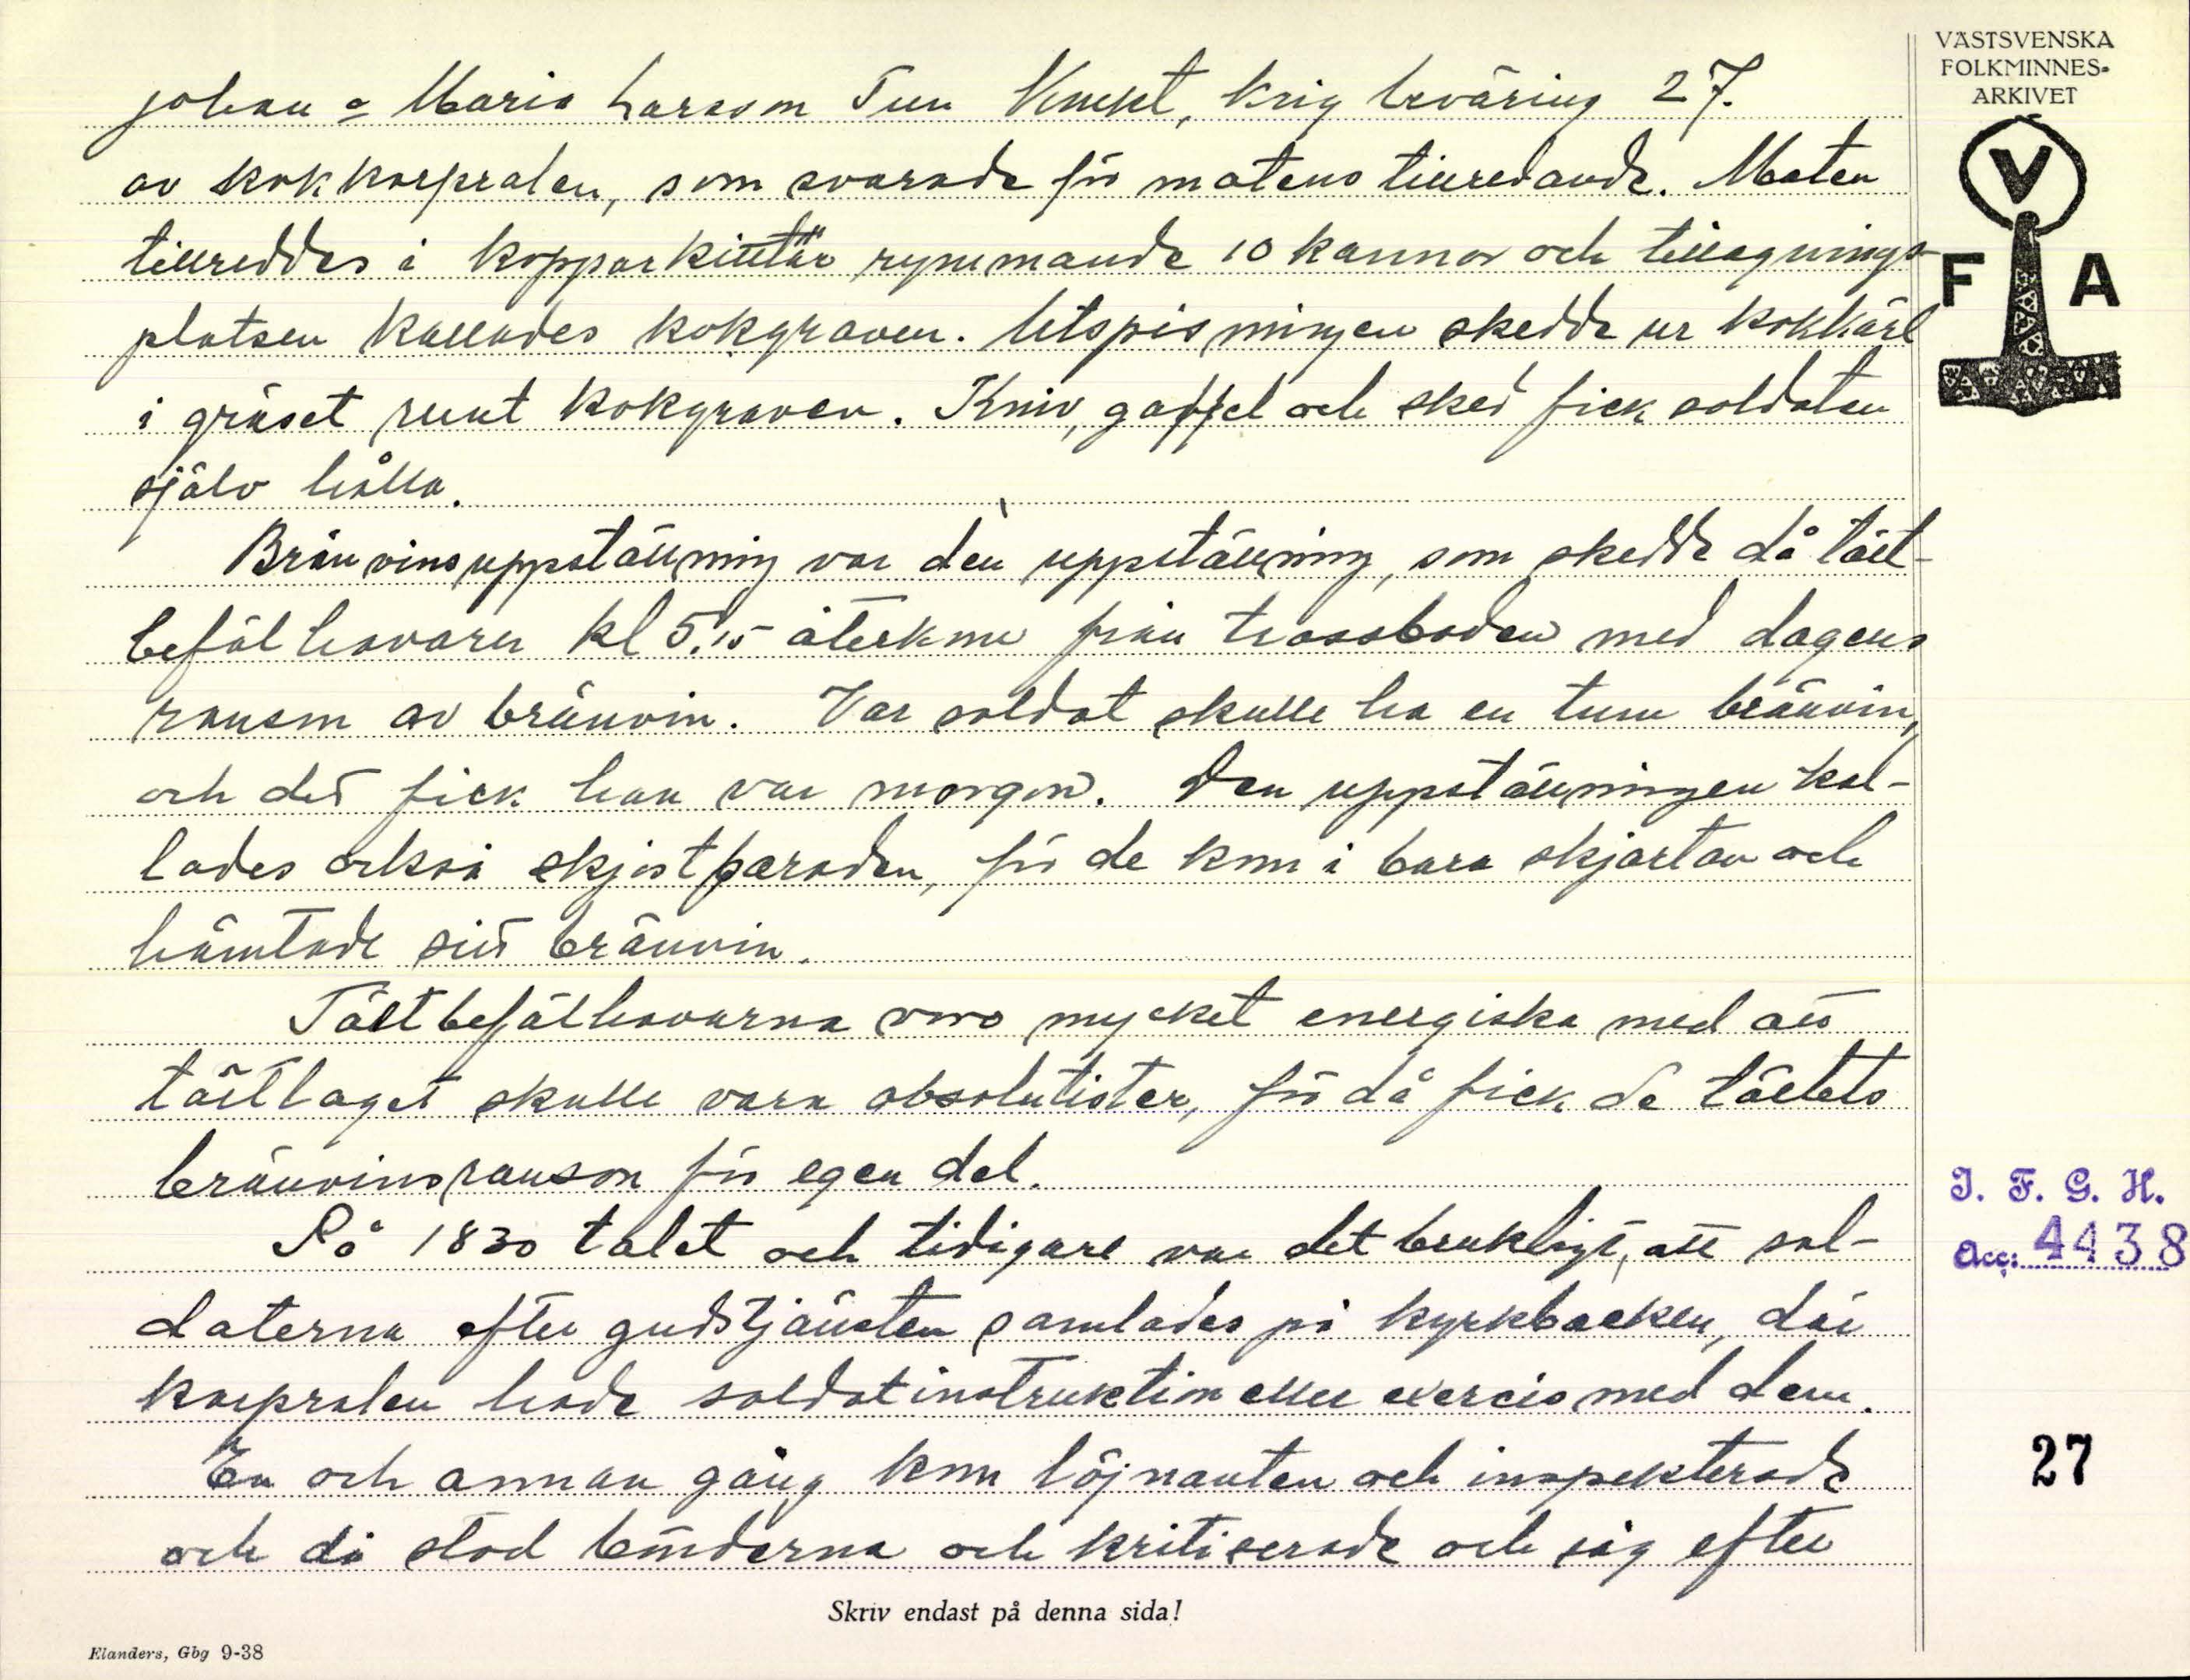 VÄSTSVENSKA
FOLKMINNES-
ARKIVET
V
F A
Johan o Maria Larsson Tun Knekt, krig beväring 27.
av kokkorpralen, som svarade för matens tillredande. Maten
tillreddes i kopparkittlar rymmande 10 kannor och tillagnings-
platsen kallades kokgraven. Utspisningen skedde ur kokkärl
i gräset runt kokgraven. Kniv, gaffel och sked fick soldaten
själv hålla.
Brännvinsuppställning var den uppställning, som skedde då tält-
befälhavaren kl 5.15 återkom från trossboden med dagens
ranson av brännvin. Var soldat skulle ha en tum brännvin,
och det fick han var morgon. Den uppställningen kal-
lades också skjortparaden, för de kom i bara skjortan och
hämtade sitt brännvin.
Tältbefälhavarna voro mycket energiska med att
tältlaget skulle vara absolutister, för då fick de tältets
brännvinsranson för egen del.
På 1830 talet och tidigare var det brukligt, att sol-
daterna efter gudstjänsten samlades på kyrkbacken, där
korpralen hade soldatinstruktion eller exercis med dem.
En och annan gång kom löjnanten och inspekterade
och då stod bönderna och kritiserade och såg efter
I. F. G. H.
Acc: 4438
27
Skriv endast på denna sida!
Elanders, Gbg 9-38